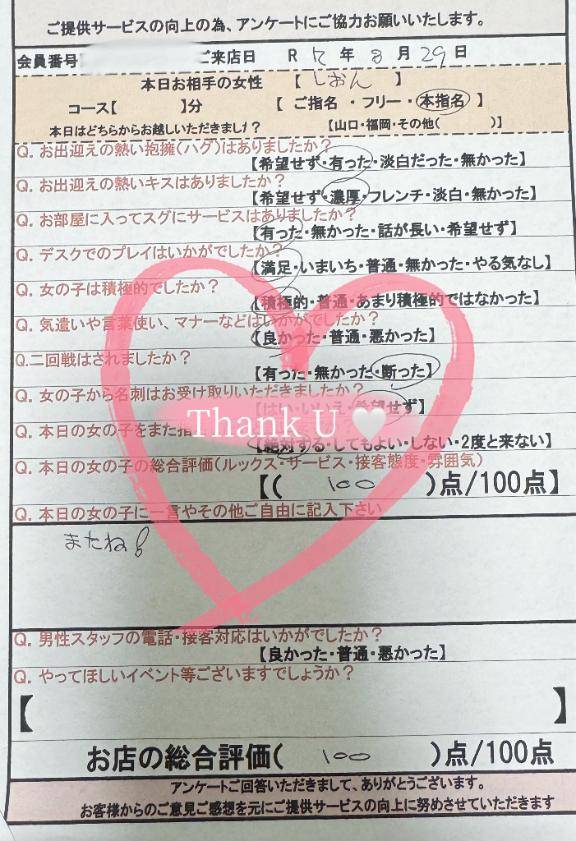 ご提供サービスの向上の為、アンケートにご協力お願いいたします。
会員番号 ご来店日 R 7 年 8 月 29 日
本日お相手の女性 【 しおん 】
コース【 】分 【 ご指名・フリー・本指名 】
本日はどちらからお越しいただきました? 【山口・福岡・その他( )】
Q. お出迎えの熱い抱擁(ハグ)はありましたか?
【希望せず・有った・淡白だった・無かった】
Q. お出迎えの熱いキスはありましたか?
【希望せず・濃厚・フレンチ・淡白・無かった】
Q. お部屋に入ってスグにサービスはありましたか?
【有った・無かった・話が長い・希望せず】
Q. デスクでのプレイはいかがでしたか?
【満足・いまいち・普通・無かった・やる気なし】
Q. 女の子は積極的でしたか?
【積極的・普通・あまり積極的ではなかった】
Q. 気遣いや言葉使い、マナーなどはいかがでしたか?
【良かった・普通・悪かった】
Q.二回戦はされましたか?
【有った・無かった・断った】
Q. 女の子から名刺はお受け取りいただきましたか?
【はい・いいえ・希望せず】
Thank U
Q. 本日の女の子をまた指
【絶対する・してもよい・しない・2度と来ない】
Q. 本日の女の子の総合評価(ルックス・サービス・接客態度・雰囲気)
【( 100 )点/100点】
Q. 本日の女の子に一言やその他ご自由に記入下さい
またね!
Q. 男性スタッフの電話・接客対応はいかがでしたか?
【良かった・普通・悪かった】
Q. やってほしいイベント等ございますでしょうか?
【 】
お店の総合評価( 100 )点/100点
アンケートご回答いただきまして、ありがとうございます。
お客様からのご意見ご感想を元にご提供サービスの向上に努めさせていただきます